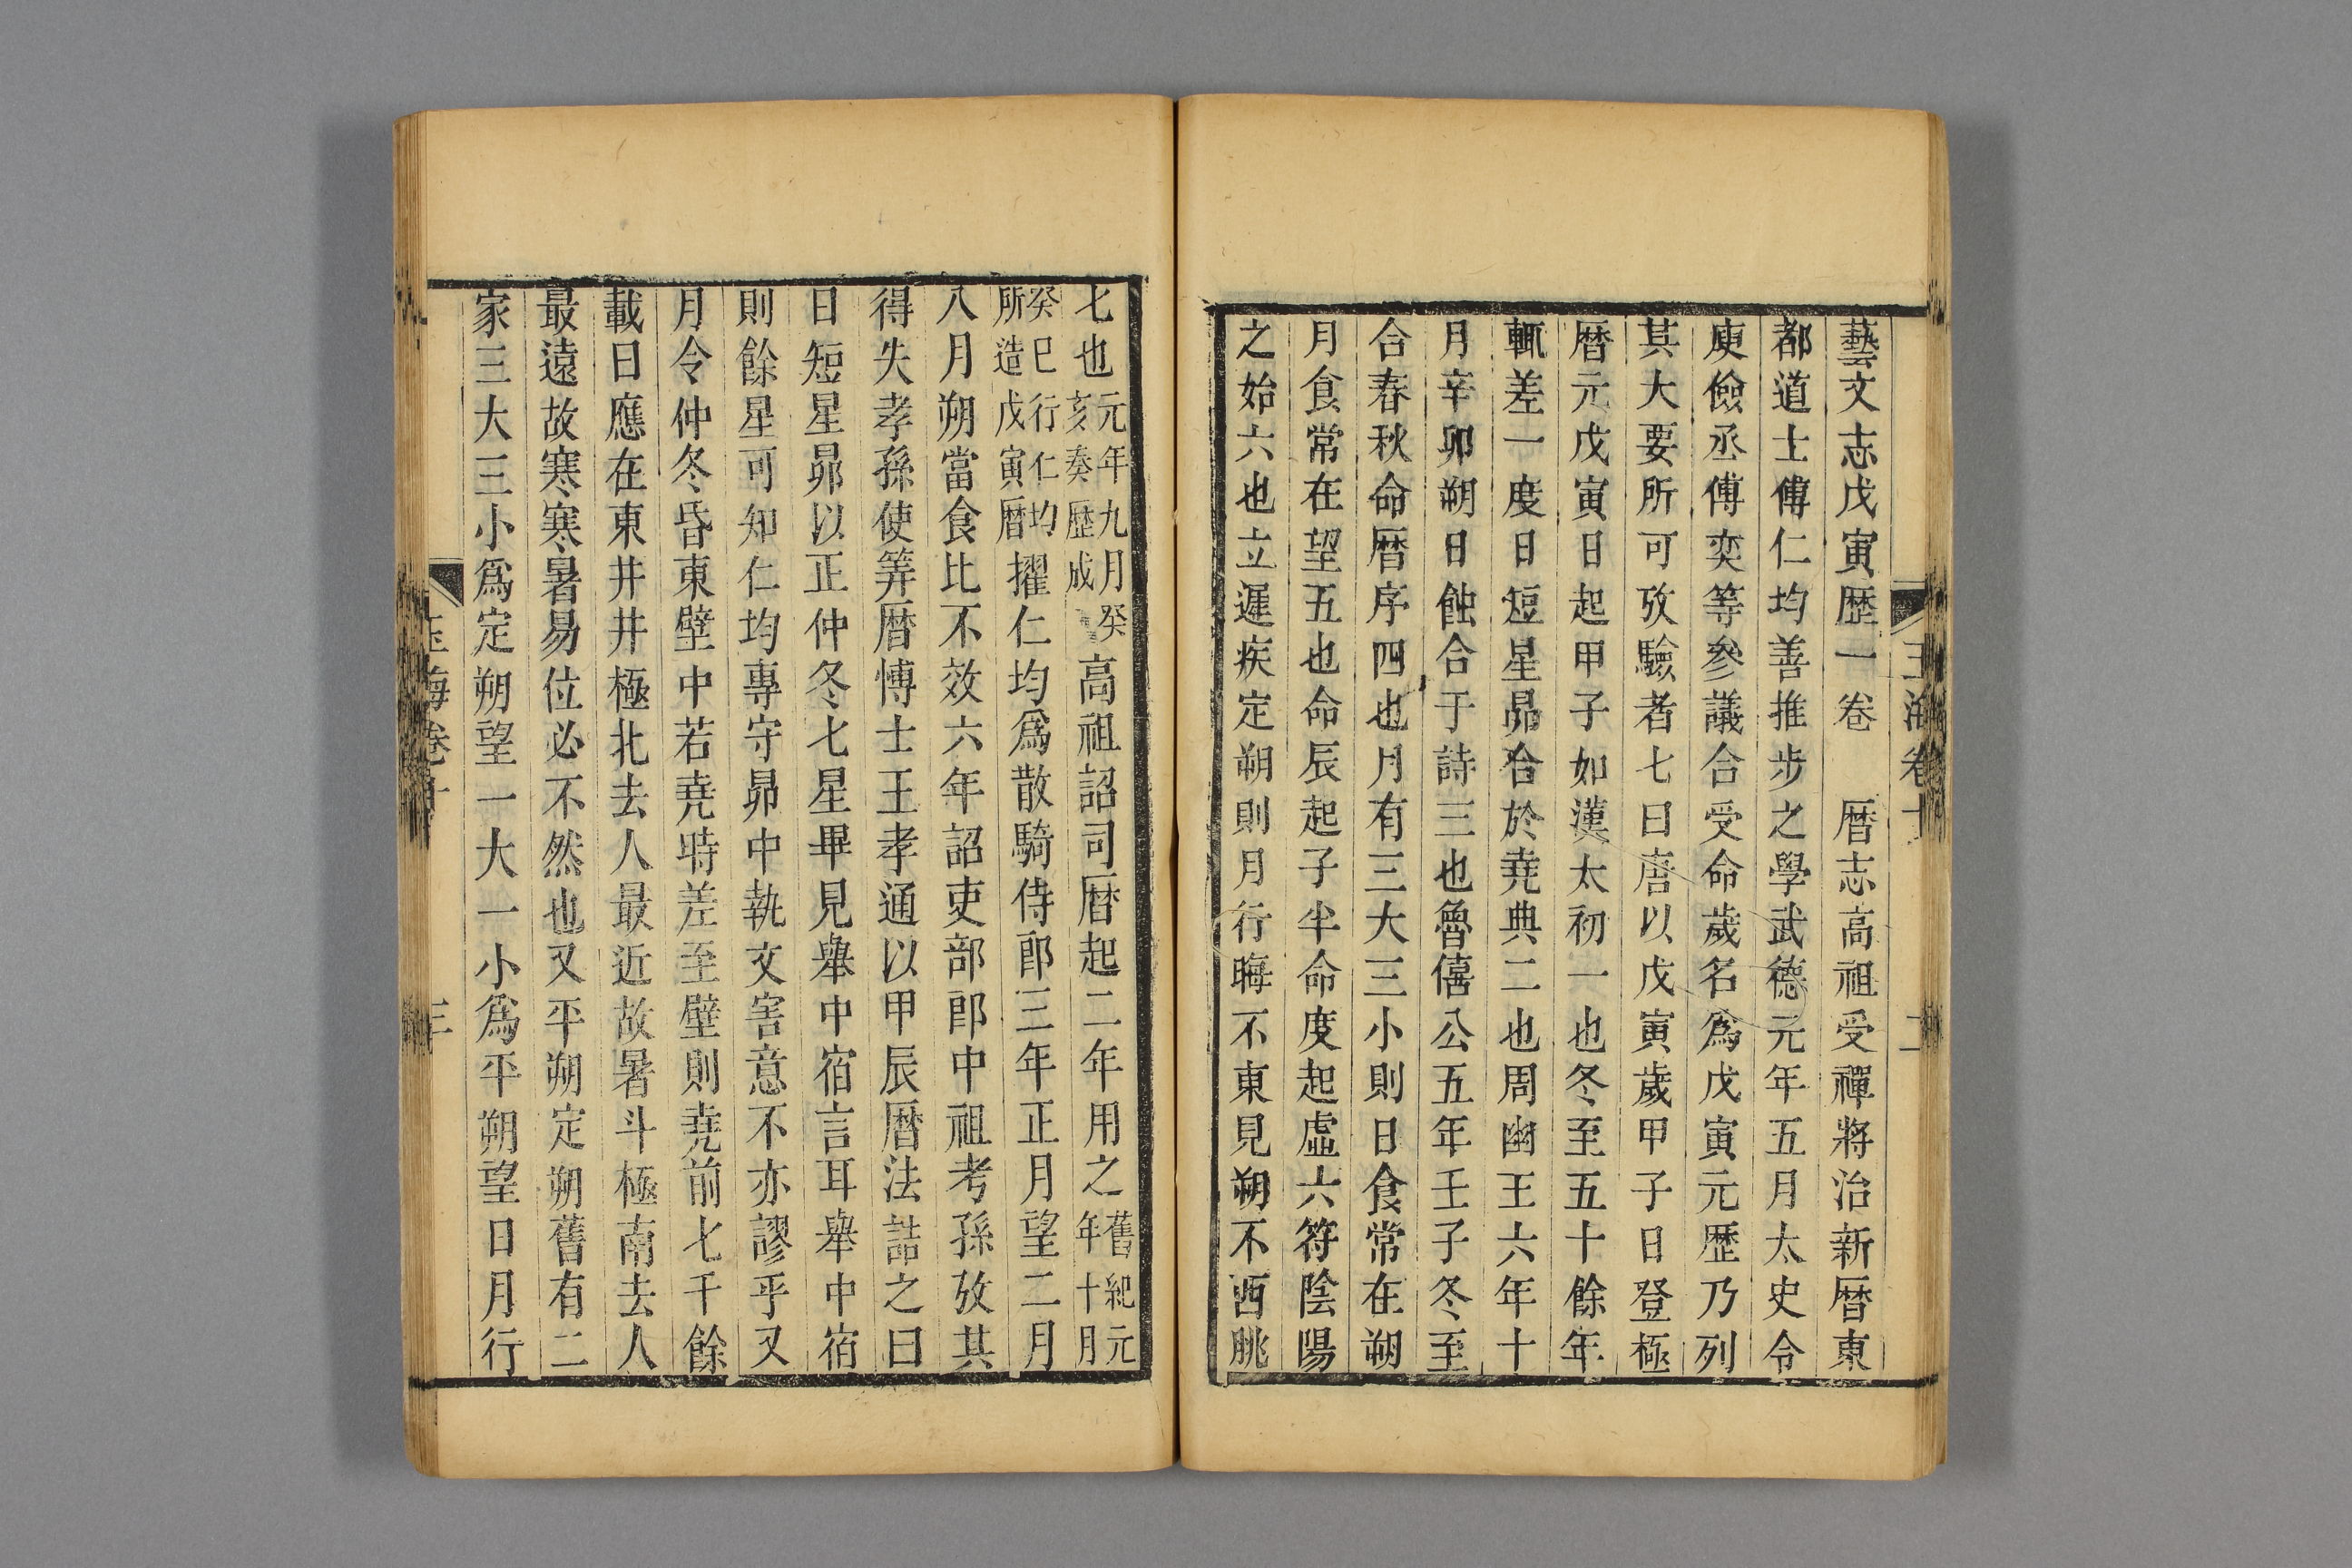 藝文志戊寅歴一卷　暦志高祖受禪將治新暦東
都道士傅仁均善推步之學武德元年五月太史令
庾儉丞傅奕等參議合受命歲名爲戊寅元歴乃列
其大要所可攷驗者七曰唐以戊寅歲甲子日登極
暦元戊寅日起甲子如漢太初一也冬至五十餘年
輒差一度日短星昴合於堯典二也周幽王六年十
月辛卯朔日蝕合于詩三也魯僖公五年壬子冬至
合春秋命暦序四也月有三大三小則日食常在朔
月食常在望五也命辰起子半命度起虛六符陰陽
之始六也立遲疾定朔則月行晦不東見朔不西朓
七也元年九月癸亥奏歴成高祖詔司暦起二年用之舊紀元年十月
癸巳行仁均所造戊寅暦擢仁均爲散騎侍郎三年正月望二月
八月朔當食比不效六年詔吏部郎中祖考孫攷其
得失孝孫使筭暦博士王孝通以甲辰暦法詰之曰
日短星昴以正仲冬七星畢見舉中宿言耳舉中宿
則餘星可知仁均專守昴中執文害意不亦謬乎又
月令仲冬昏東壁中若堯時差至壁則堯前七千餘
載日應在東井井極北去人最近故暑斗極南去人
最遠故寒寒暑易位必不然也又平朔定朔舊有二
家三大三小爲定朔望一大一小爲平朔望日月行
玉海卷十
二
玉海卷十
三